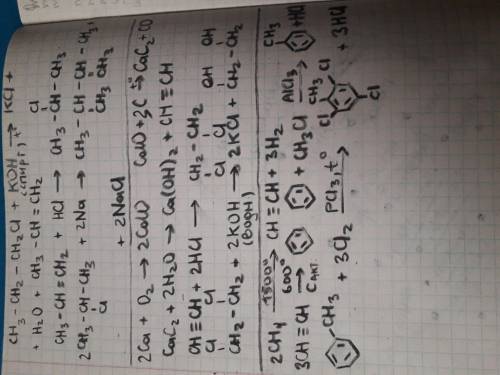 CH3-CH2-CH2Cl + KOH (спирт), t° → KCl +
+ H2O + CH3-CH=CH2
Cl
CH3-CH=CH2 + HCl → CH3-CH-CH3
2CH3-CH-CH3 + 2Na → CH3-CH-CH-CH3 +
Cl CH3 CH3
+ 2NaCl
2Ca + O2 → 2CaO CaO + 3C t° → CaC2 + CO
CaC2 + 2H2O → Ca(OH)2 + CH≡CH
CH≡CH + 2HCl → CH2-CH2
Cl Cl Cl Cl OH OH
CH2-CH2 + 2KOH (водн) → 2KCl + CH2-CH2
2CH4 1500° → CH≡CH + 3H2
3CH≡CH 600° C акт. → + CH3Cl AlCl3 → CH3 + HCl
CH3 + 3Cl2 PCl3, t° → CH3 Cl Cl Cl + 3HCl